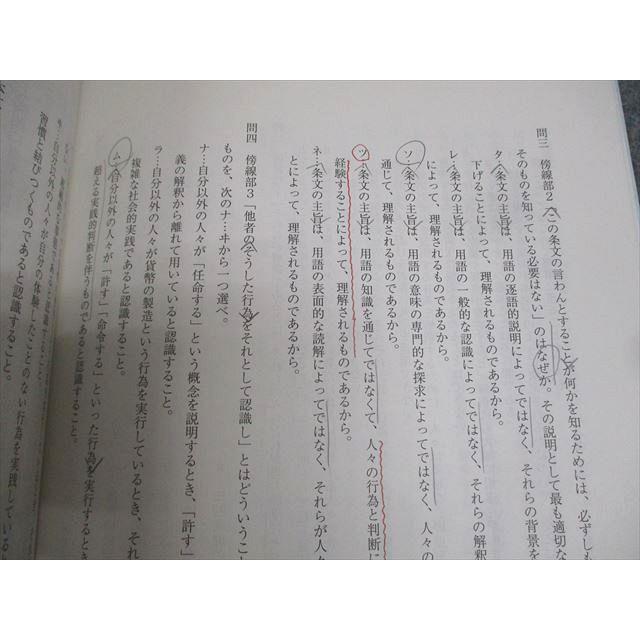 問三 傍線部2「この条文の言わんとすることが何かを知るためには、必ずしも
そのものを知っている必要はない」のはなぜか。その説明として最も適切な
タ…条文の主旨は、用語の逐語的説明によってではなく、それらの背景を
下げることによって、理解されるものであるから。
レ…条文の主旨は、用語の一般的な認識によってではなく、それらの解釈
によって、理解されるものであるから。
ソ…条文の主旨は、用語の意味の専門的な探求によってではなく、人々の
通じて、理解されるものであるから。
ツ…条文の主旨は、用語の知識を通じてではなくて、人々の行為と判断に
経験することによって、理解されるものであるから。
ネ…条文の主旨は、用語の表面的な読解によってではなく、それらが人々
とによって、理解されるものであるから。
問四 傍線部3「他者のそうした行為をそれとして認識し」とはどういうこ
ものを、次のナ…ヰから一つ選べ。
ナ…自分以外の人々が「任命する」という概念を説明するとき、「許す」
義の解釈から離れて用いていると認識すること。
ラ…自分以外の人々が貨幣の製造という行為を実行しているとき、それ
複雑な社会的実践であると認識すること。
ム…自分以外の人々が「許す」「命令する」といった行為を実行するとき
超える実践的判断を伴うものであると認識すること。
自分以外の人々が自分の体験したことのない行為を実践している
習慣と結びつくものであると認識すること。